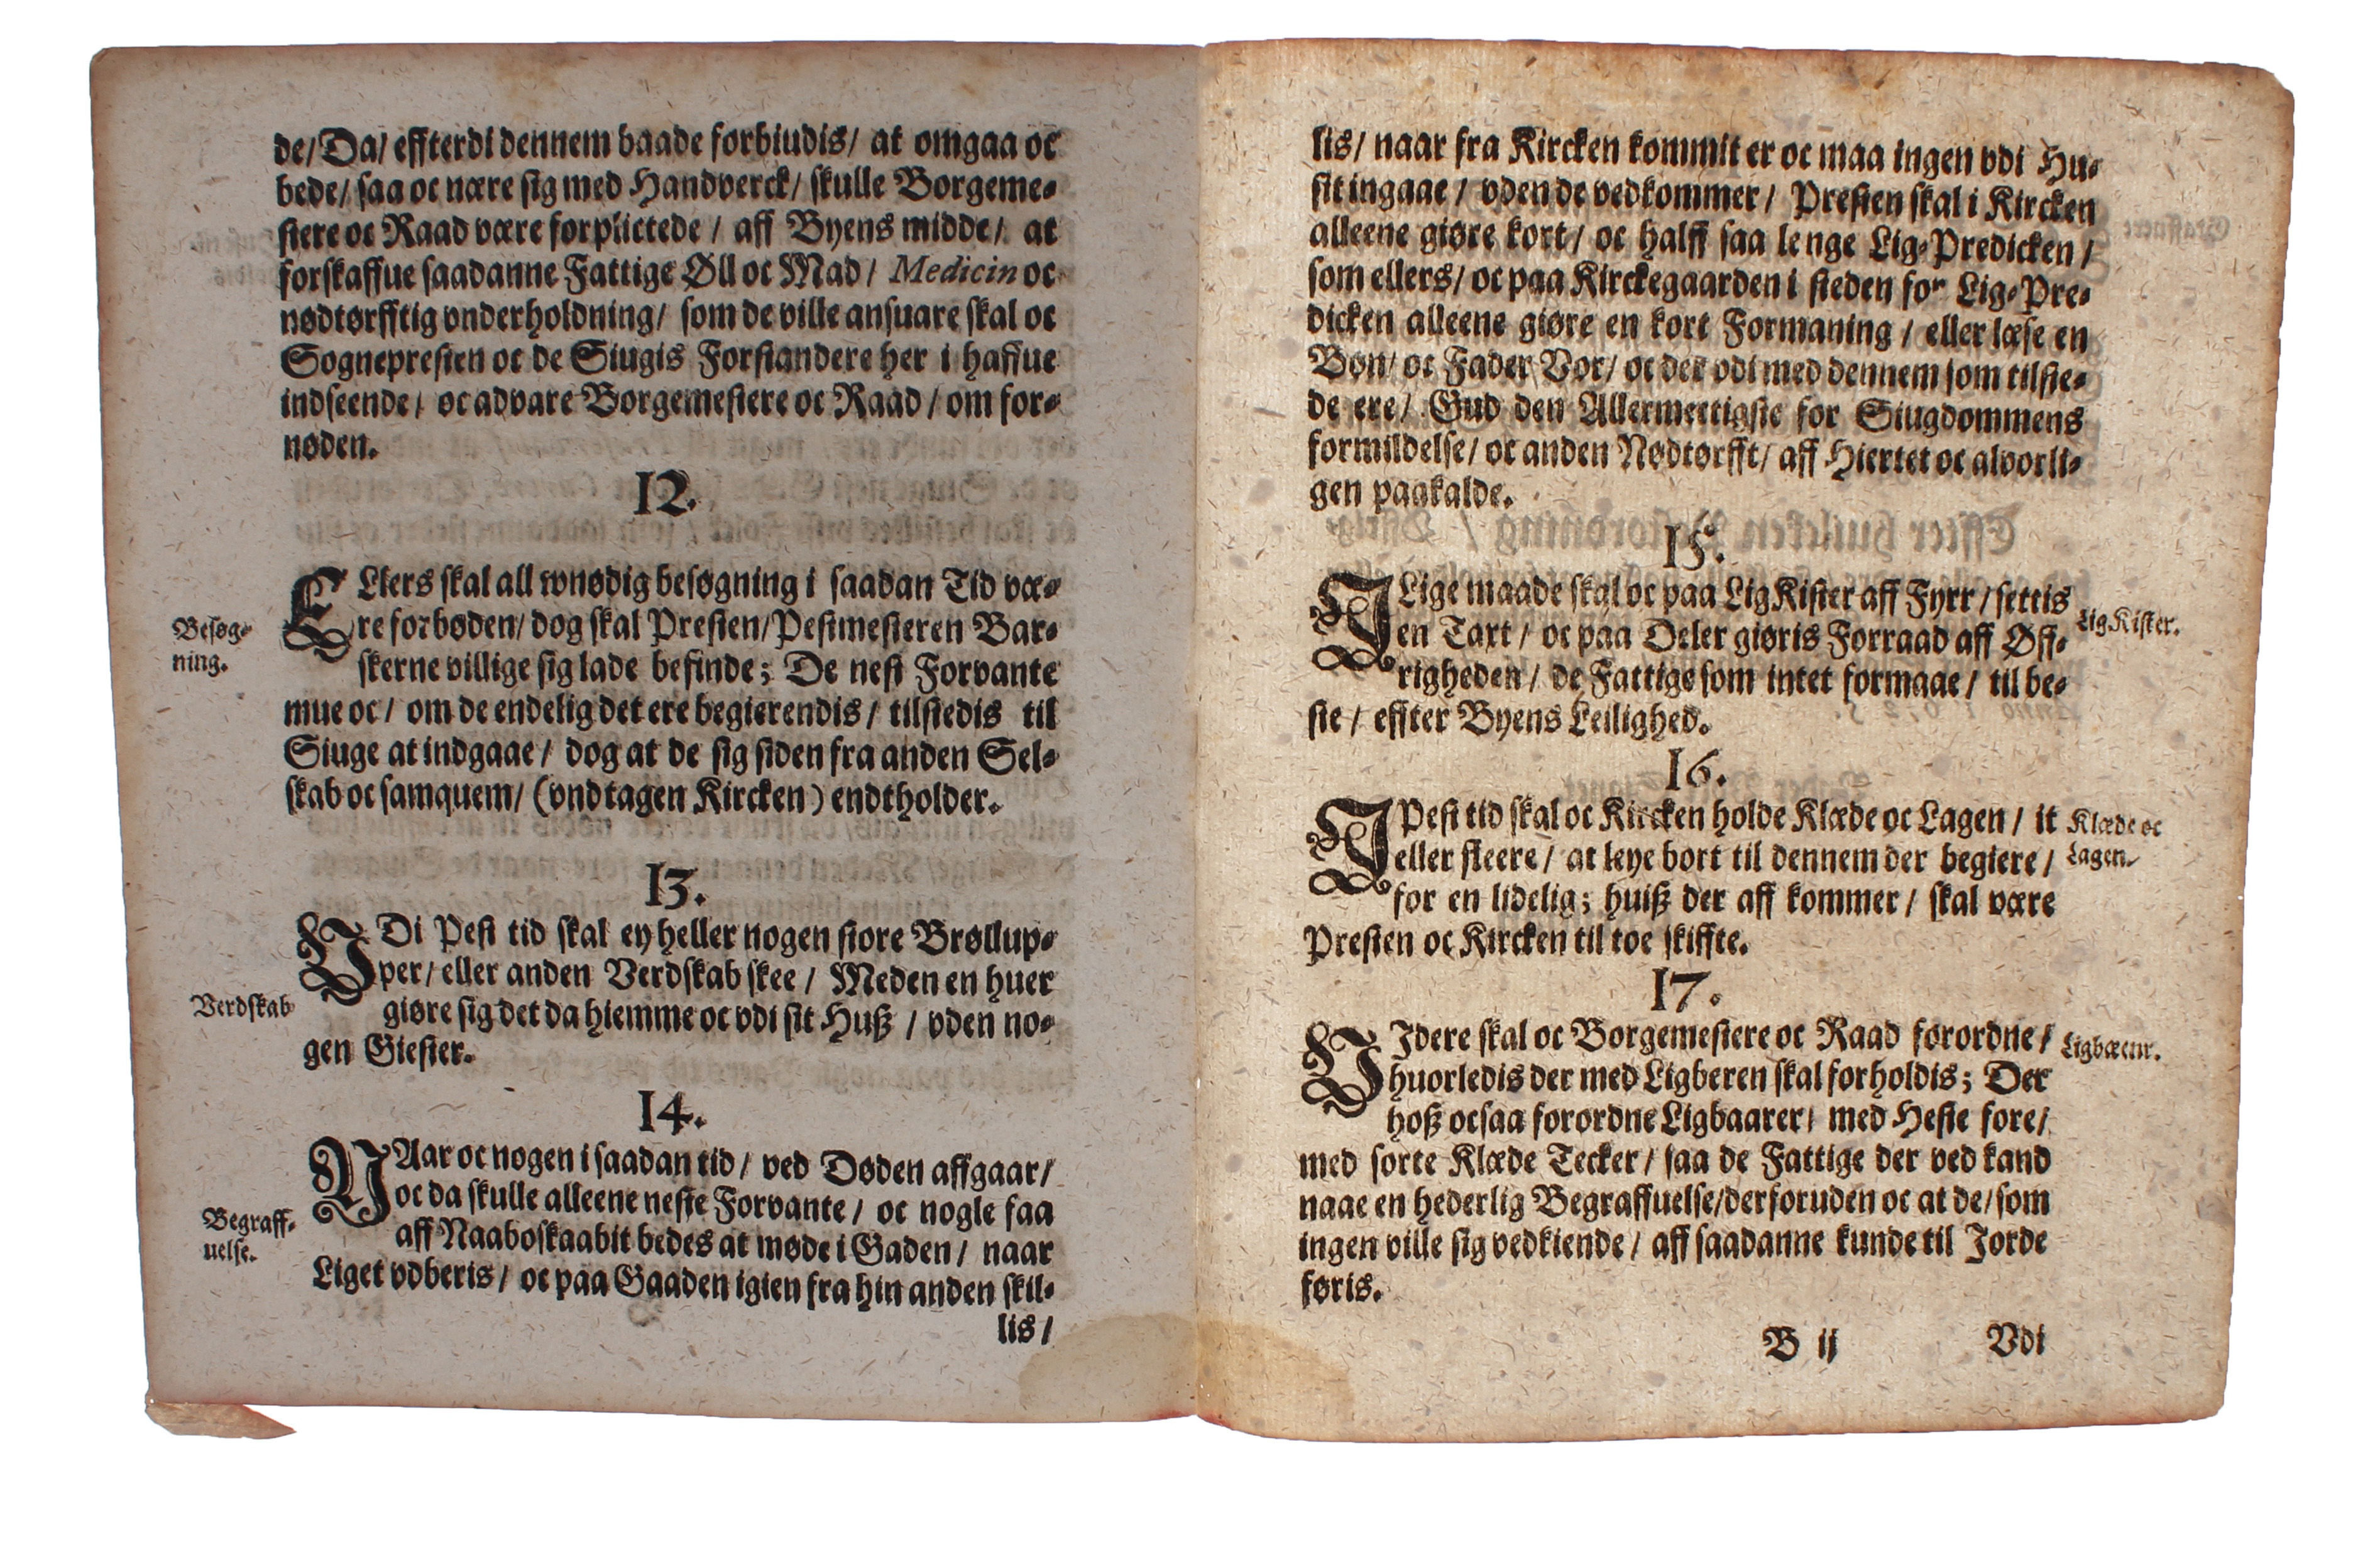 de/ Da/ effterdi dennem baade forbiudis/ at omgaa oc
bede/ saa oc nære sig med Handverck/ skulle Borgeme-
stere oc Raad være forplictede / aff Byens midde/ at
forskaffue saadanne Fattige Øll oc Mad / Medicin oc
nødtørfftig vnderholdning/ som de ville ansuare skal oc
Sognepresten oc de Siugis Forstandere her i haffue
indseende/ oc advare Borgemestere oc Raad / om for-
nøden.
12.
ELlers skal all vnødig besøgning i saadan Tid væ-
re forbøden/ dog skal Presten/ Pestmesteren Bar-
skerne villige sig lade befinde; De nest Forvante
mue oc / om de endelig det ere begierendis / tilstedis til
Siuge at indgaae / dog at de sig siden fra anden Sel-
skab oc samquem/ (vndtagen Kircken) endtholder.
Besøg-
ning.
13.
VDi Pest tid skal ey heller nogen store Brøllup-
per/ eller anden Verdskab skee / Meden en huer
giøre sig det da hiemme oc vdi sit Huß / vden no-
gen Giester.
Verdskab
14.
NAar oc nogen i saadan tid / ved Døden affgaar/
oc da skulle alleene neste Forvante / oc nogle faa
aff Naaboskaabit bedes at møde i Gaden / naar
Liget vdberis / oc paa Gaaden igien fra hin anden skil-
lis /
Begraff-
uelse.
lis/ naar fra Kircken kommit er oc maa ingen vdi Hu-
sit ingaae / vden de vedkommer / Presten skal i Kircken
alleene giøre kort / oc halff saa lenge Lig-Predicken /
som ellers/ oc paa Kirckegaarden i steden for Lig-Pre-
dicken alleene giøre en kort Formaning / eller læse en
Bøn/ oc Fader Vor/ oc der vdi med dennem som tilste-
de ere / Gud den Allermectigste for Siugdommens
formildelse/ oc anden Nødtørfft/ aff Hiertet oc alvorli-
gen paakalde.
15.
I Lige maade skal oc paa Lig Kister aff Fyrr / settis
en Taxt / oc paa Deler giøris Forraad aff Øff-
righeden / de Fattige som intet formaae / til be-
ste / effter Byens Leilighed.
Lig Kister.
16.
I Pest tid skal oc Kircken holde Klæde oc Lagen / it
eller fleere / at leye bort til dennem der begiere /
for en lidelig; huiß der aff kommer / skal være
Presten oc Kircken til toe skiffte.
Klæde oc
Lagen.
17.
VIdere skal oc Borgemestere oc Raad forordne /
huorledis der med Ligberen skal forholdis; Der
hoß ocsaa forordne Ligbaarer/ med Heste fore/
med sorte Klæde Tecker / saa de Fattige der ved kand
naae en hederlig Begraffuelse/ derforuden oc at de/ som
ingen ville sig vedkiende / aff saadanne kunde til Jorde
føris.
B ij Vdi